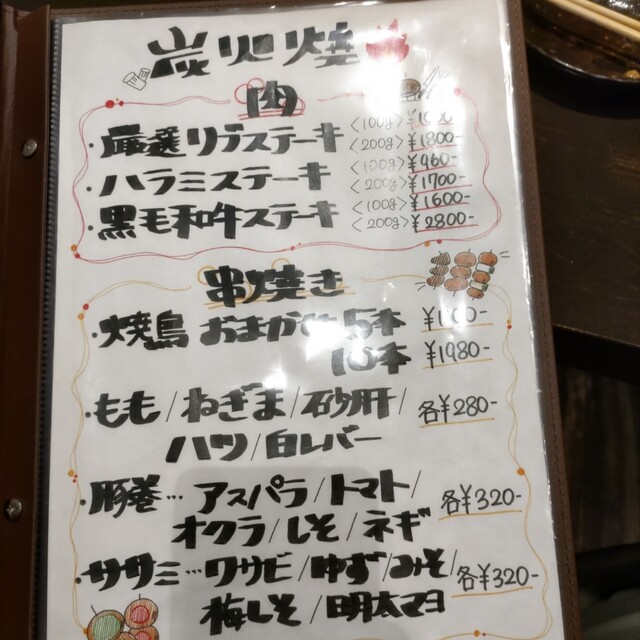 炭火焼
肉
・厳選リブステーキ 〈100g〉
〈200g〉 ¥1800-
・ハラミステーキ 〈100g〉 ¥960-
〈200g〉 ¥1700-
・黒毛和牛ステーキ 〈100g〉 ¥1600-
〈200g〉 ¥2800-
串焼き
・焼鳥 おまかせ 5本
10本 ¥1980-
・もも/ねぎま/砂肝/ 各¥280-
ハツ/白レバー
・豚巻…アスパラ/トマト/ 各¥320-
オクラ/しそ/ネギ
・ササミ…ワサビ/ゆず/みそ/ 各¥320-
梅しそ/明太マヨ